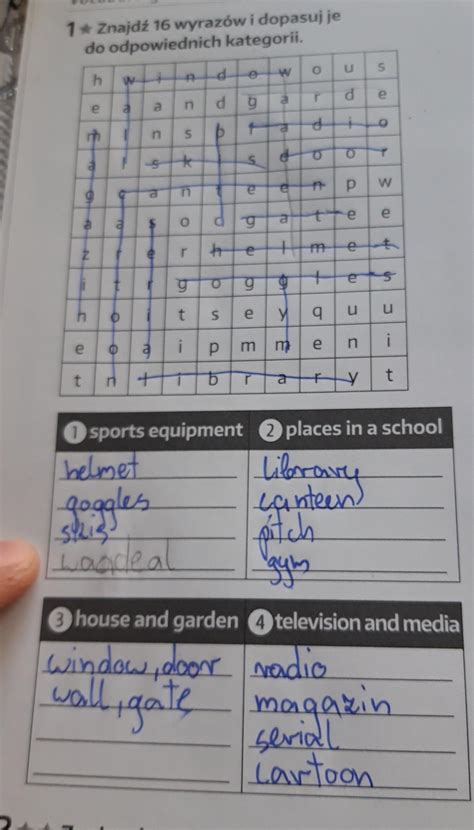 1 ★ Znajdź 16 wyrazów i dopasuj je
do odpowiednich kategorii.
h w i n d o w o u s
e a a n d g a r d e
m l n s p r a d i o
a l s k i s d o o r
g c a n t e e n p w
a a s o c g a t e e
z r e r h e l m e t
i t r g o g g l e s
n o i t s e y q u u
e o a i p m m e n i
t n l i b r a r y t
1 sports equipment 2 places in a school
helmet library
goggles canteen
skis pitch
gym
3 house and garden 4 television and media
window, door radio
wall, gate magazin
serial
cartoon